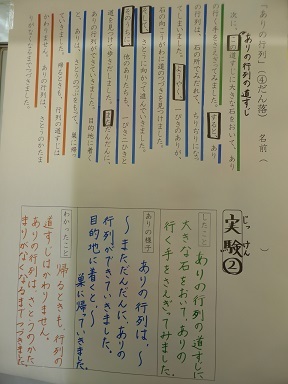 「ありの行列」（④だん落）　名前（　　　）
ありの行列の道すじ
次に、この道すじに大きな石をおいて、あり
の行く手をさえぎってみました。すると、あり
の行列は、石の所でみだれて、ちりぢりになっ
てしまいました。ようやく、一ぴきのありが、
石の向こうがわに道のつづきを見つけました。
そして、さとうに向かって進んでいきました。
そのうちに、他のありたちも、一ぴき二ひきと
道を見つけて歩きだしました。まただんだんに、
ありの行列ができていきました。目的地に着く
と、ありは、さとうのつぶをもって、巣に帰っ
ていきました。帰るときも、行列の道すじは
かわりません。ありの行列は、さとうのかたま
りがなくなるまでつづきました。
実験②
じっけん
したこと
ありの行列の道すじに
大きな石をおいてありの
行く手をさえぎってみました。
ありの様子
ありの行列は、〜
〜まただんだんに、ありの
行列ができていきました。
目的地に着くと、〜
巣に帰っていきました。
わかったこと
帰るときも、行列の
道すじはかわりません。
ありの行列は、さとうのかた
まりがなくなるまでつづきました。